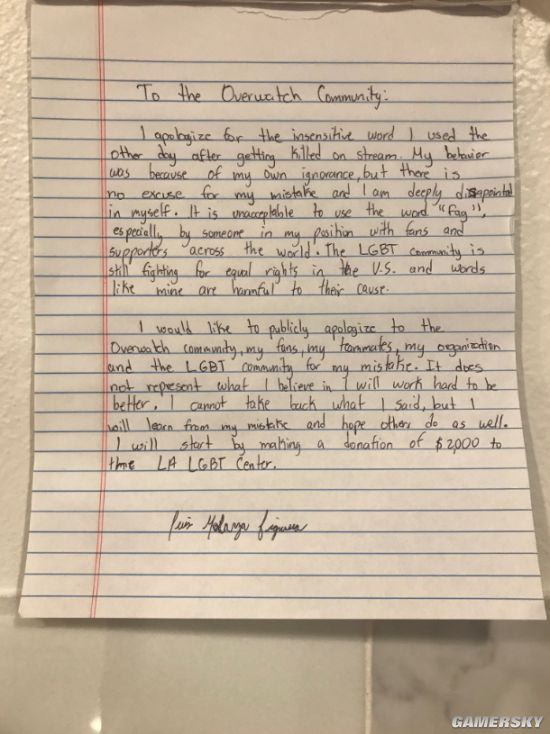 To the Overwatch Community:
I apologize for the insensitive word I used the
other day after getting killed on stream. My behavior
was because of my own ignorance, but there is
no excuse for my mistake and I am deeply disapointed
in myself. It is unacceptable to use the word "fag",
especially by someone in my position with fans and
supporters across the world. The LGBT community is
still fighting for equal rights in the U.S. and words
like mine are harmful to their cause.
I would like to publicly apologize to the
Overwatch community, my fans, my teammates, my organization
and the LGBT community for my mistake. It does
not represent what I believe in I will work hard to be
better. I cannot take back what I said, but I
will learn from my mistake and hope others do as well.
I will start by making a donation of $2,000 to
the LA LGBT Center.
GAMERSKY